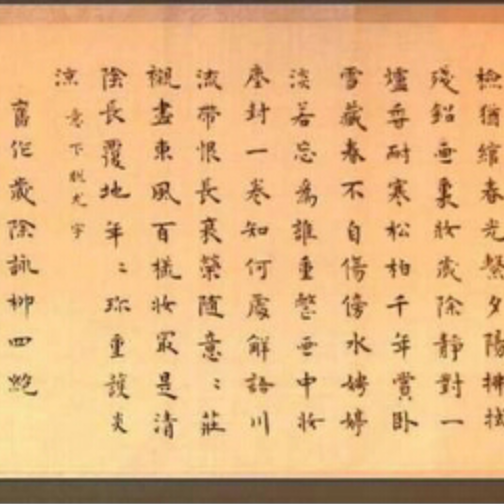 檢猶綰春光繫夕陽拂拭
殘鉛畫裏妝歲除靜對一
爐香耐寒松柏千年賞臥
雪藏春不自傷傍水娉婷
淡若忘為誰重盥畫中妝
塵封一卷知何處解語川
流帶恨長衰榮隨意〻莊
襯盡東風百樣妝最是清
陰長覆地年〻珍重護炎
涼 意下脫尤字
舊作歲除詠柳四絕